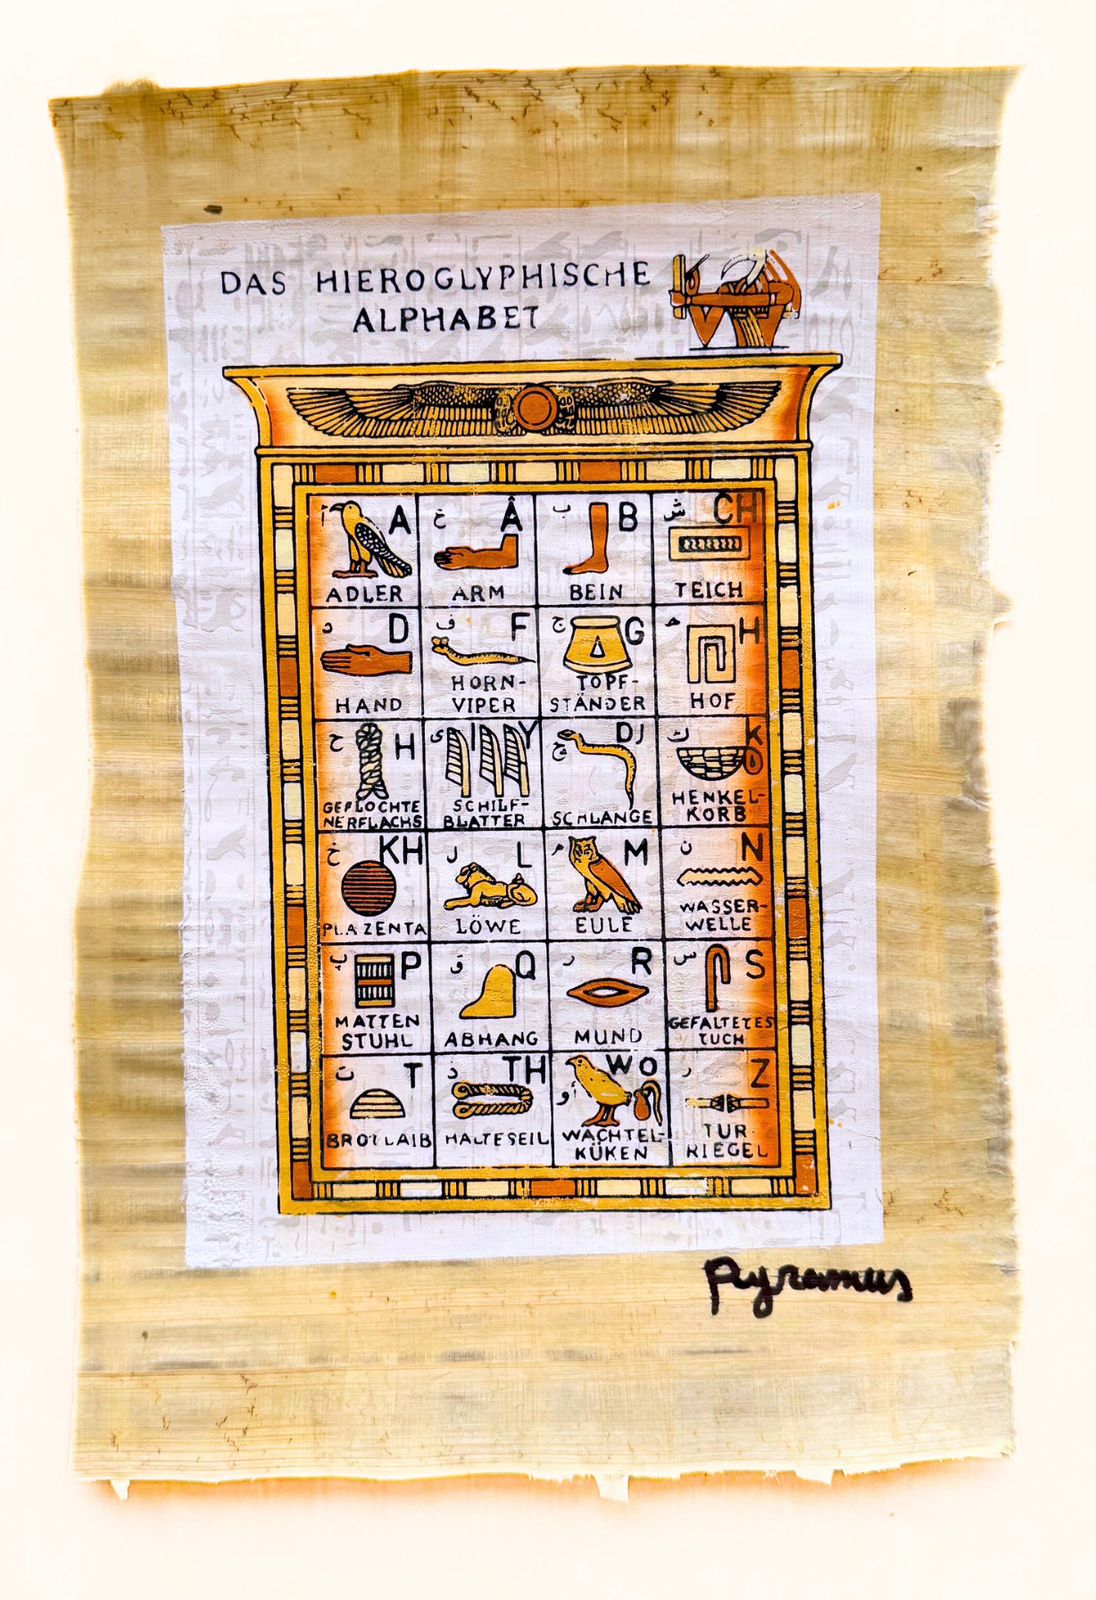 DAS HIEROGLYPHISCHE
ALPHABET
أ A
ADLER
ع Â
ARM
ب B
BEIN
ش CH
TEICH
د D
HAND
ف F
HORN-
VIPER
ج G
TOPF-
STÄNDER
H
HOF
ح H
GEFLOCHTE
NERFLACHS
ى I Y
SCHILF-
BLATTER
ج DJ
SCHLANGE
ك K
HENKEL-
KORB
خ KH
PLAZENTA
ل L
LÖWE
م M
EULE
ن N
WASSER-
WELLE
P
MATTEN
STUHL
ق Q
ABHANG
ر R
MUND
س S
GEFALTETES
TUCH
ت T
BROTLAIB
ذ TH
HALTESEIL
أو W O
WACHTEL-
KÜKEN
Z
TUR
RIEGEL
Pyramus